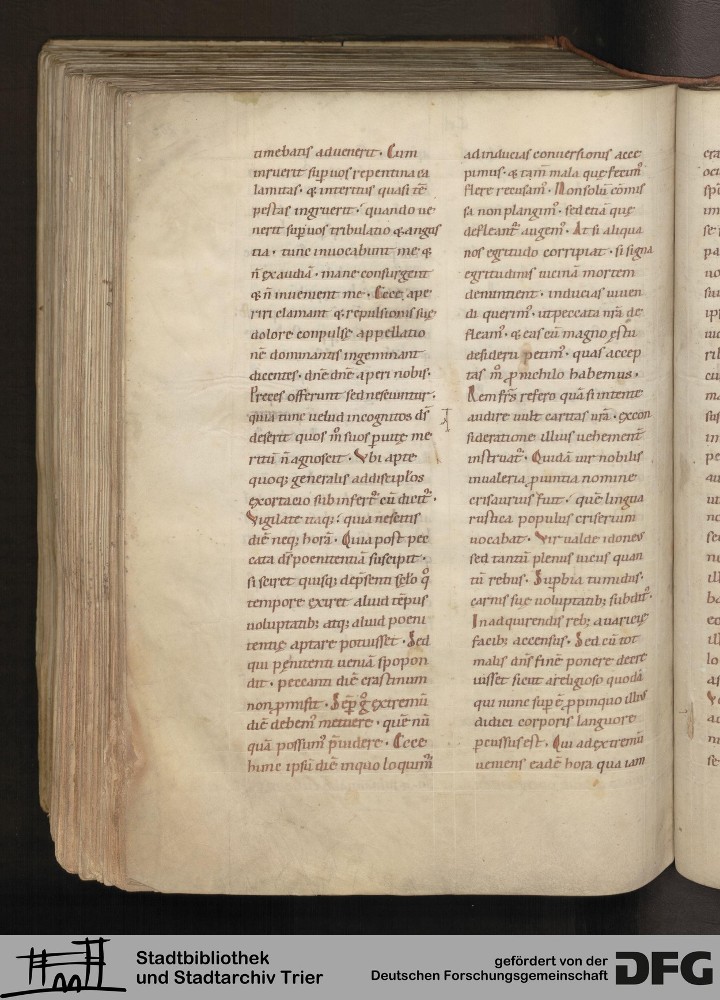 timebatis aduenerit. Cum
inruerit sup uos repentina ca
lamitas. & interitus quasi tē
pestas ingruerit. quando ue
nerit sup uos tribulatio & angus
tia. tunc inuocabunt me &
ñ exaudiā. mane consurgent
& ñ inuenient me. Ecce ape
riri clamant & repulsionis sue
dolore conpulse appellatio
nē dominantis ingeminant
dicentes. dñe dñe aperi nobis.
Preces offerunt sed nesciuntur.
quia tunc uelud incognitos dš
deserit quos m̊ suos p uite me
ritū ñ agnoscit. Vbi apte
quoq; generalis ad discipłos
exortatio subinfert᷑ cū dicit᷑.
Vigilate itaq; quia nescitis
diē neq; horā. Quia post pec
cata dš poenitentiā suscipit.
si sciret quisq; de p̄senti sc̄lo q̊
tempore exiret aliud tēpus
uoluptatib; atq; aliud poeni
tentie aptare potuisset. Sed
qui penitenti ueniā spopon
dit. peccanti diē crastinum
non p̱misit. Sēp g̊ extremū
diē debem᷒ metuere. quē nū
quā possum᷒ p̄uidere. Ecce
hunc ipsū diē in quo loquim᷒
ad inducias conuersionis acce
pimus. & tam̄ mala que fecim᷒
flere recusam᷒. Non solū cōmis
sa non plangim᷒. sed etiā que
defleant᷑ augem᷒. At si aliqua
nos egritudo corripiat. si signa
egritudinis uicinā mortem
denuntient. inducias uiuen
di querim᷒. ut peccata nr̄a de
fleam᷒. & eas cū magno estu
desiderii petim᷒. quas accep
tas m̊ p̱ nichilo habemus.
Rem fr̄s refero quā si intente
audire uult caritas ur̄a. ex con
sideratione illius uehement᷑
instruat᷑. Quidā uir nobilis
in ualeria p̱uintia nomine
crisaurius fuit. quē lingua
rustica populus criserium
uocabat. Vir ualde idoneus
sed tantū plenus uiciis quan
tū rebus. Supbia tumidus.
carnis sue uoluptatib; subdit᷒.
In adquirendis reb; auaricie
facib; accensus. Sed cū tot
malis dn̄s finē ponere decre
uisset sicut a religioso quodā
qui nunc sup ē. p̱pinquo illius
audiui corporis languore
pcussus est. Qui ad extremū
ueniens eadē hora qua iam
Stadtbibliothek
und Stadtarchiv Trier
gefördert von der
Deutschen Forschungsgemeinschaft
DFG